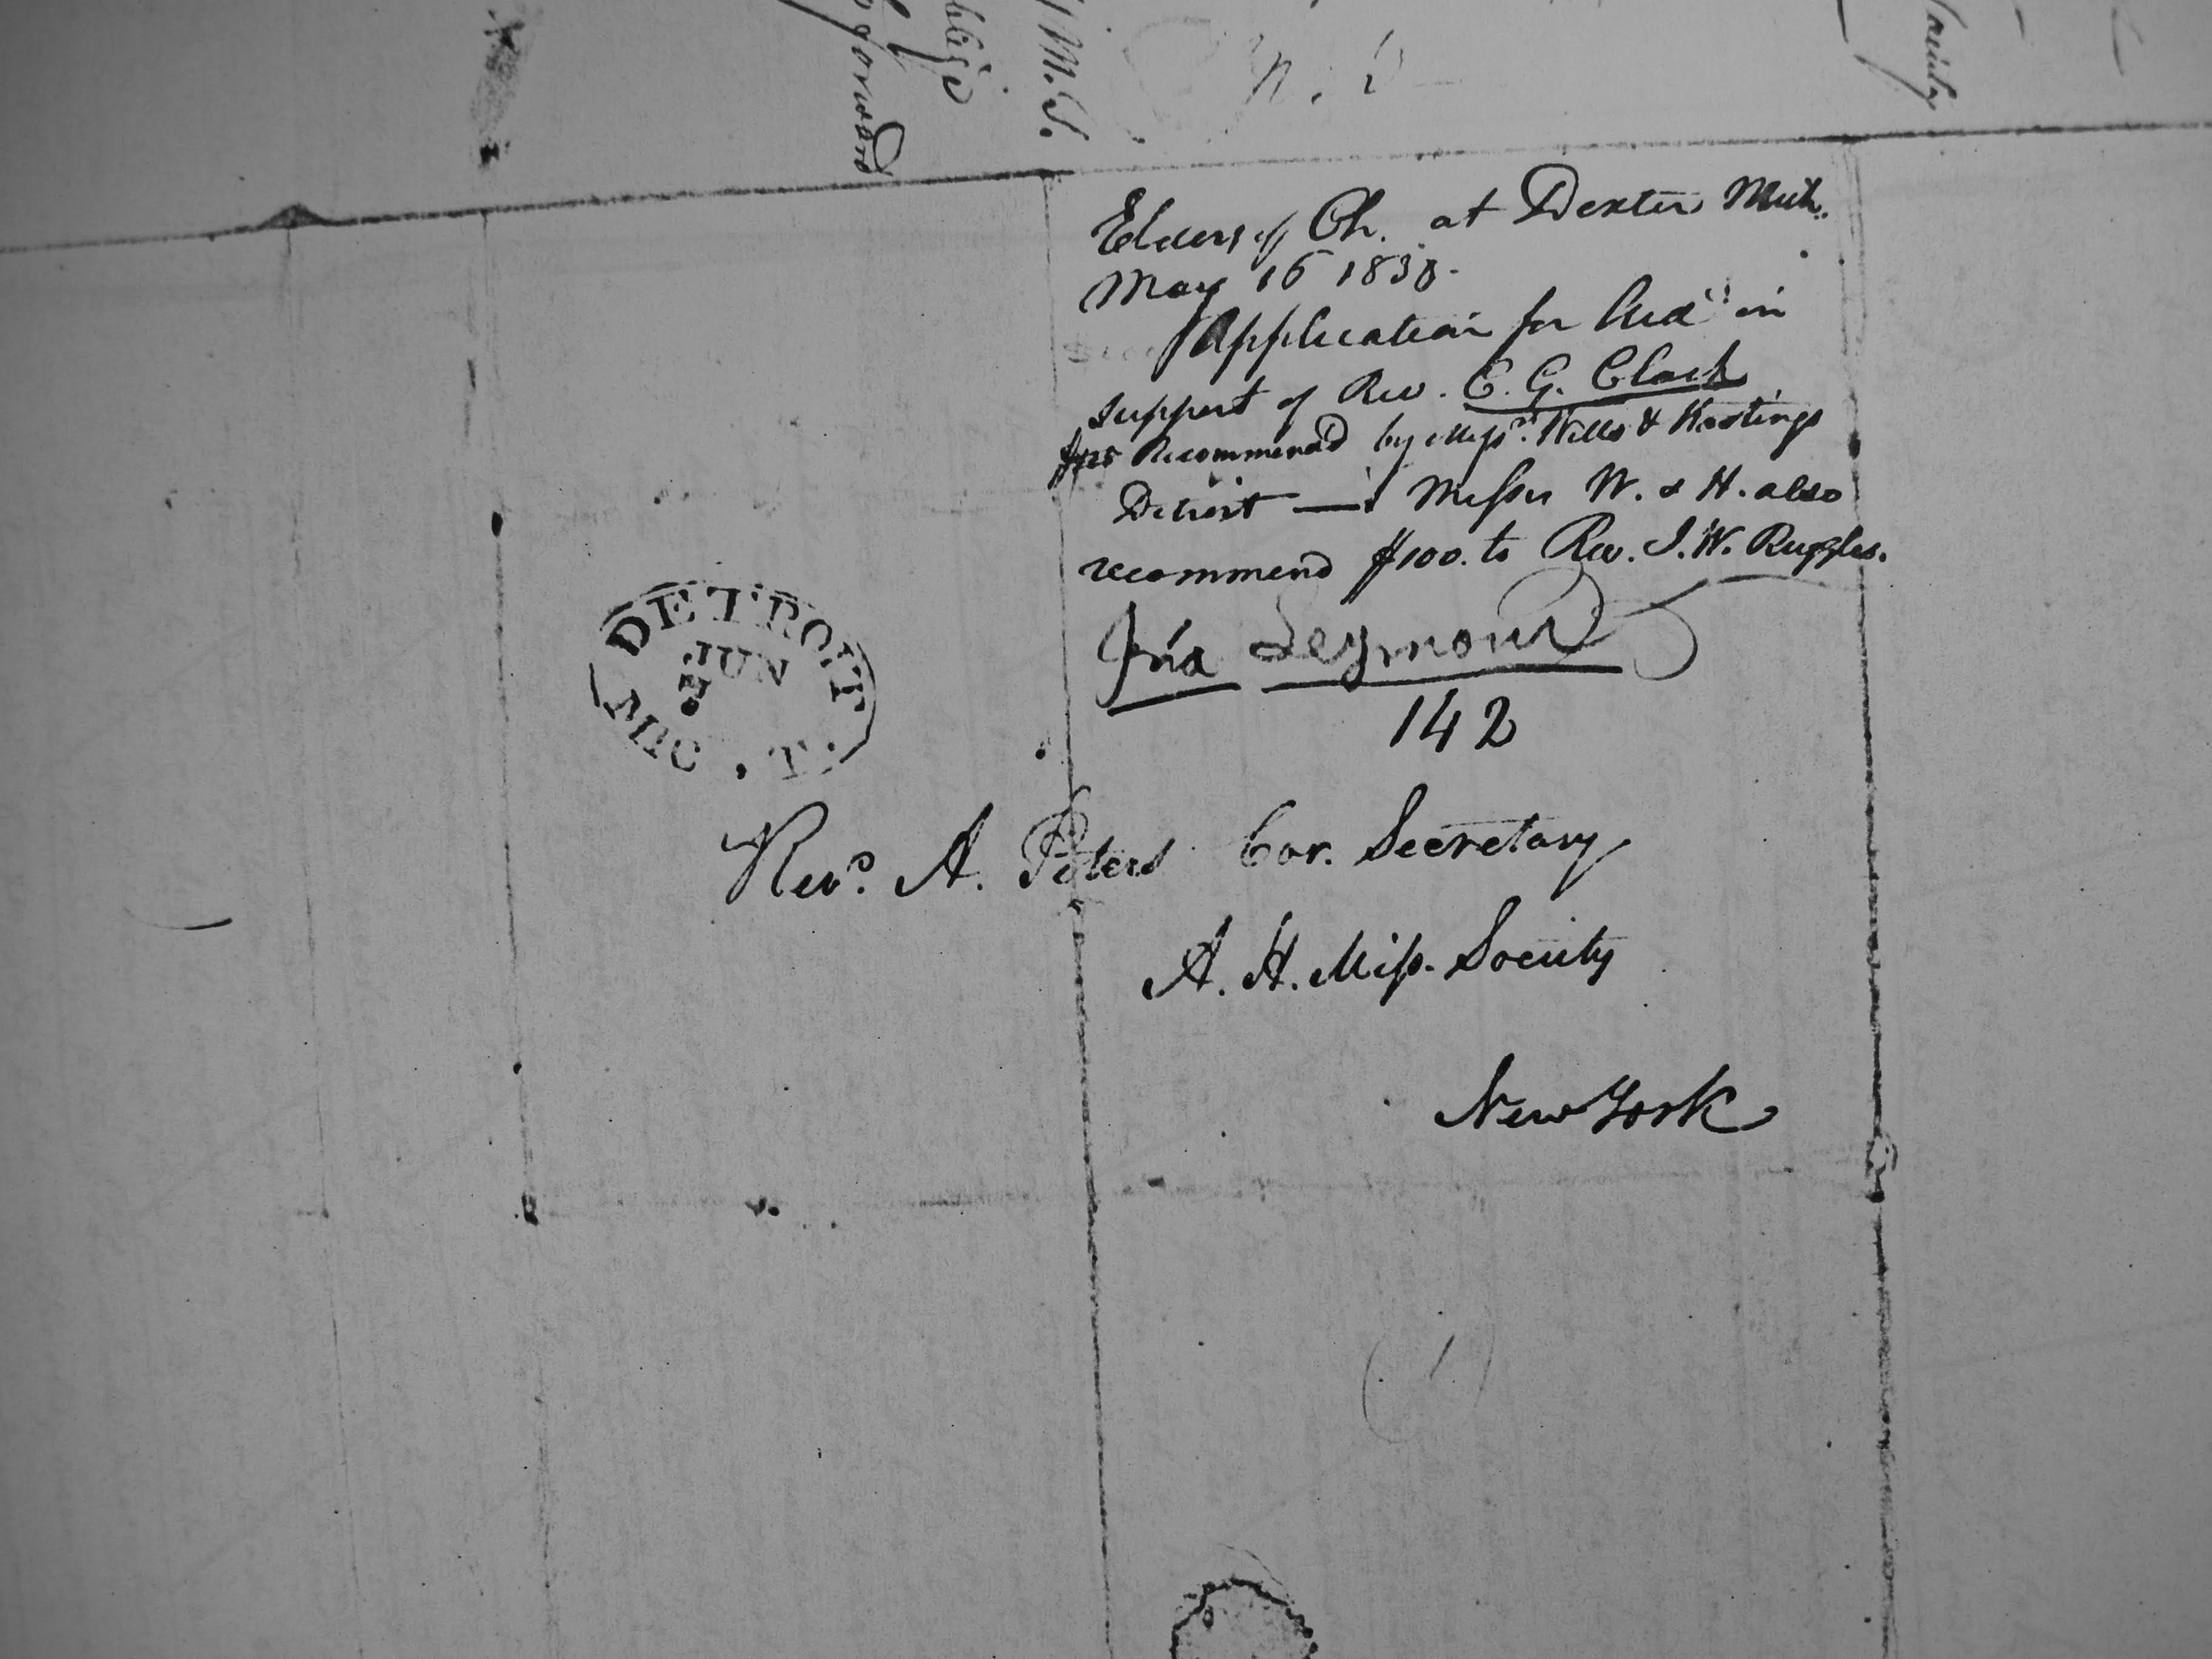 M.S.
forward
Elders of Ch. at Dexter Mich.
May 16 1830.
Application for Aid in
support of Rev. E. G. Clark
Recommend by Messrs. Wells & Hastings
Detroit — Messrs W. & H. also
recommend $100. to Rev. I. W. Ruggles.
Ira Seymour
142
DETROIT
JUN
MIC. T.
Rev.d A. Peters Cor. Secretary
A. H. Miss. Society
New York